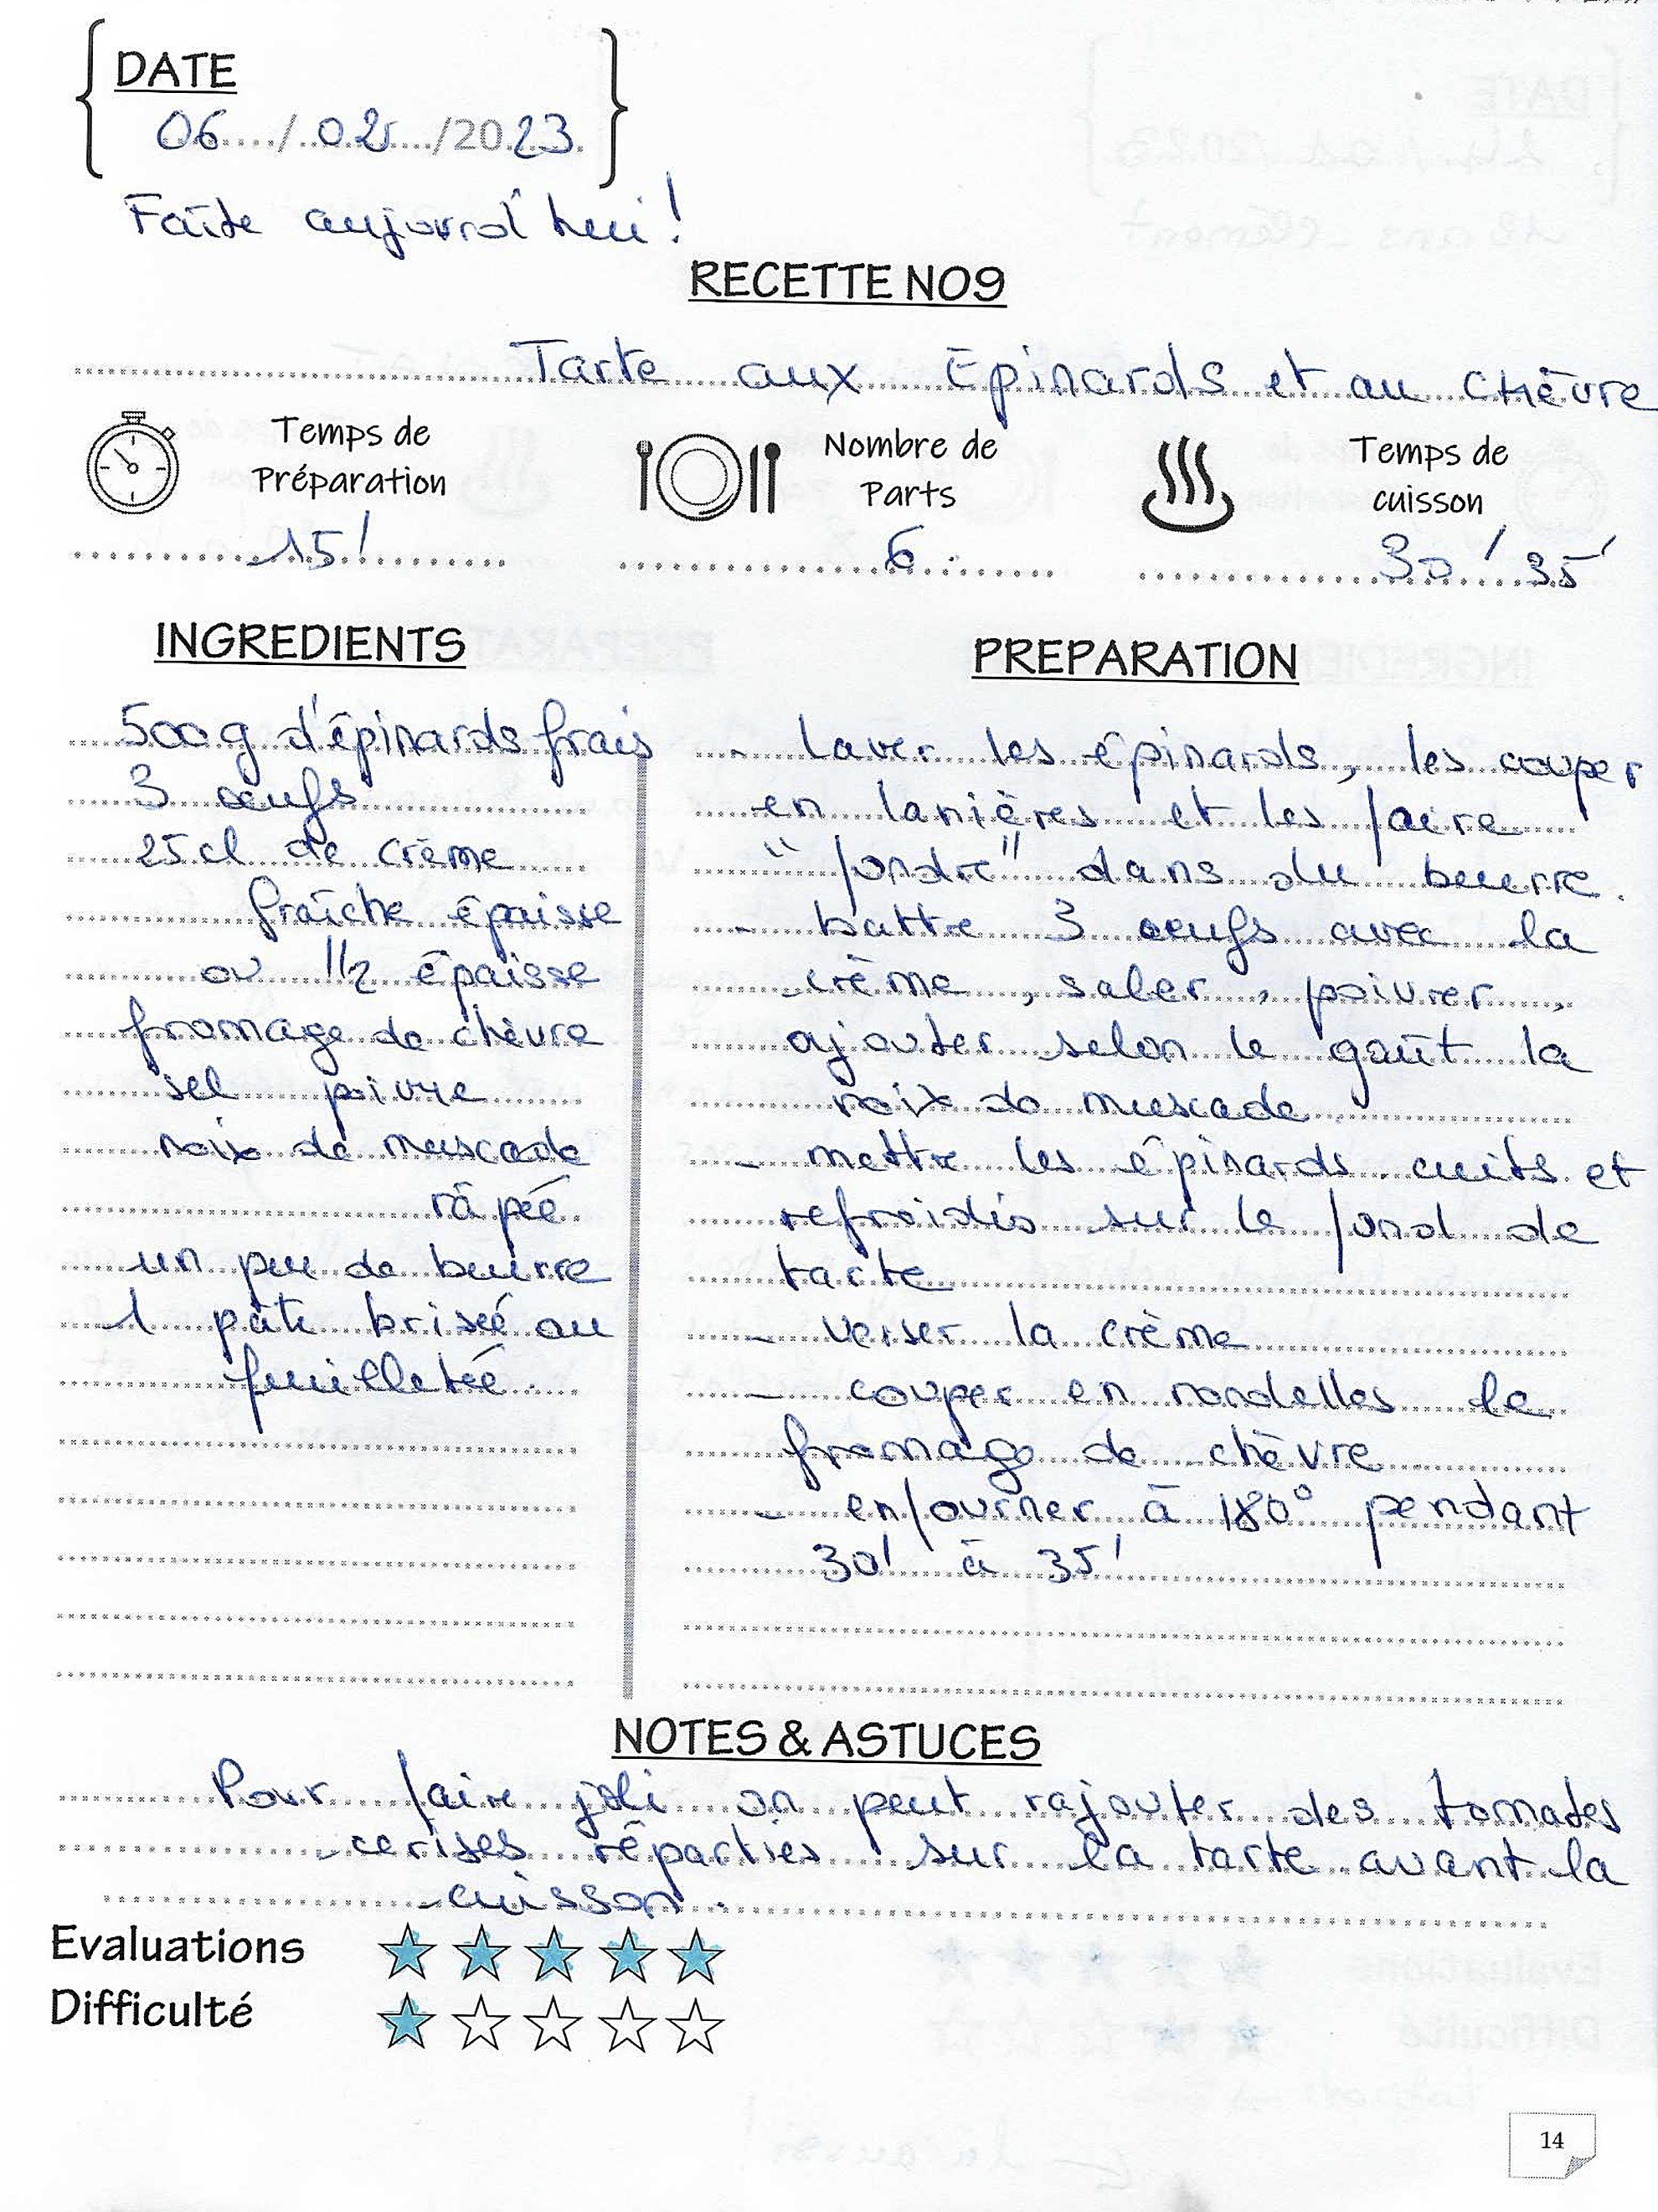 DATE
06..../..02..../2023.
Faite aujourd'hui !
RECETTE NO9
Tarte aux Épinards et au CHèvre
Temps de Préparation
Nombre de Parts
Temps de cuisson
15'
6
30' 35'
INGREDIENTS
500 g d'épinards frais
3 œufs
25 cl de crème
fraîche épaisse
ou 1/2 épaisse
fromage de chèvre
sel poivre
noix de muscade
râpée
un peu de beurre
1 pâte brisée ou
feuilletée
PREPARATION
- laver les épinards, les couper
en lanières et les faire
"fondre" dans du beurre.
- battre 3 œufs avec la
crème, saler, poivrer,
ajouter selon le goût la
noix de muscade
- mettre les épinards cuits et
refroidis sur le fond de
tarte
- verser la crème
- couper en rondelles le
fromage de chèvre
- enfourner à 180° pendant
30' à 35'
NOTES & ASTUCES
Pour faire joli on peut rajouter des tomates
cerises réparties sur la tarte avant la
cuisson.
Evaluations
Difficulté
14